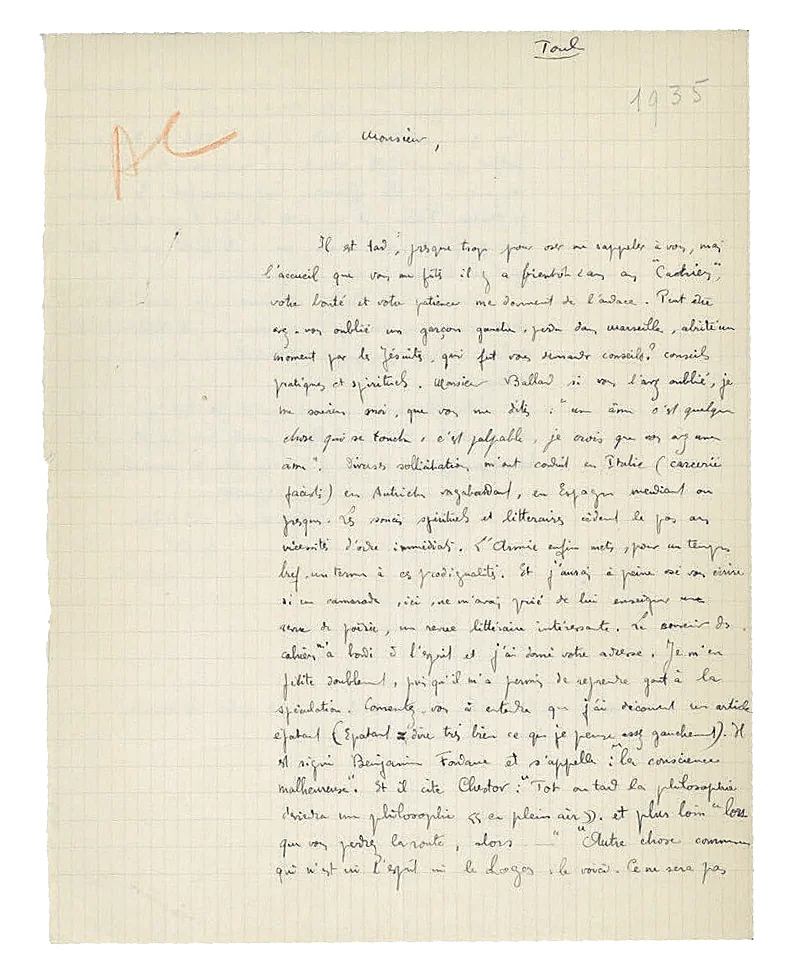 Toul
1935
AC
Monsieur,
Il est tard, presque trop pour oser me rappeler à vous, mais
l'accueil que vous me fîtes il y a bientôt 2 ans aux "Cahiers",
votre bonté et votre patience me donnent de l'audace. Peut être
avez-vous oublié un garçon gauche, perdu dans Marseille, abrité un
moment par les Jésuites, qui fut vous demander conseils? conseils
pratiques et spirituels. Monsieur Ballard si vous l'avez oublié, je
me souviens moi, que vous me dîtes : "une âme c'est quelque
chose qui se touche, c'est palpable, je crois que vous avez une
âme". Diverses sollicitations m'ont conduit en Italie (
) en Autriche vagabondant, en Espagne mendiant ou
presque. Les soucis spirituels et littéraires cèdent le pas aux
nécessités d'ordre immédiat. L'Armée enfin mets, pour un temps
bref, un terme à ces prodigualités. Et j'aurais à peine osé vous écrire
si un camarade, ici, ne m'avait prié de lui enseigner une
revue de poésie, une revue littéraire intéressante. Le souvenir des
cahiers "a bondi à l'esprit et j'ai donné votre adresse. Je m'en
félicite doublement, puisqu'il m'a permis de reprendre goût à la
spéculation. Consentez-vous à entendre que j'ai découvert un article
épatant (Epatant = dire très bien ce que je pense assez gauchement). Il
est signé Benjamin Fondane et s'appelle : "la conscience
malheureuse". Et il cite Chestov : "Tot ou tard la philosophie
deviendra une philosophie << en plein air >>. et plus loin "lors
que vous perdrez la route, alors — " "Autre chose commence
qui n'est ni l'esprit ni le Logos, le voici. Ce ne sera pas